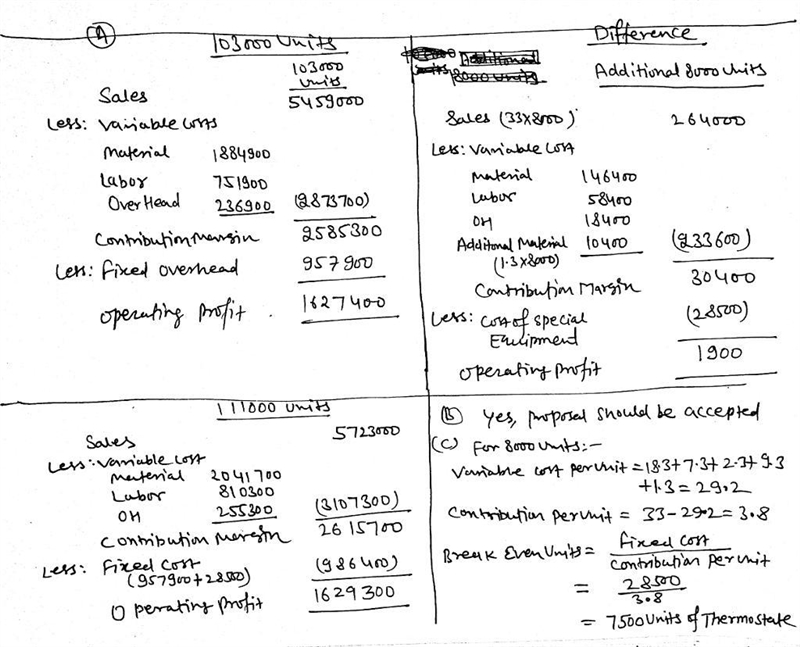 (A) 103000 Units
103000
Units
Sales 5459000
Less: Variable Costs
Material 1884900
Labor 751900
OverHead 236900 (2873700)
Contribution Margin 2585300
Less: Fixed Overhead 957900
Operating Profit 1627400
Difference
Additional 8000 Units
Sales (33x8000) 264000
Less: Variable Cost
Material 146400
Labor 58400
OH 18400
Additional Material 10400 (233600)
(1.3x8000)
Contribution Margin 30400
Less: Cost of Special (28500)
Equipment
Operating Profit 1900
111000 Units
Sales 5723000
Less: Variable Cost
Material 2041700
Labor 810300
OH 255300 (3107300)
Contribution Margin 2615700
Less: Fixed Cost (986400)
(957900+28500)
Operating Profit 1629300
(B) Yes, proposal should be accepted
(C) For 8000 Units:-
Variable Cost Per Unit = 183+7.3+2.3+9.3
+1.3 = 29.2
Contribution Per Unit = 33-29.2 = 3.8
Break Even Units = Fixed Cost
Contribution Per Unit
= 28500
3.8
= 7500 Units of Thermostate